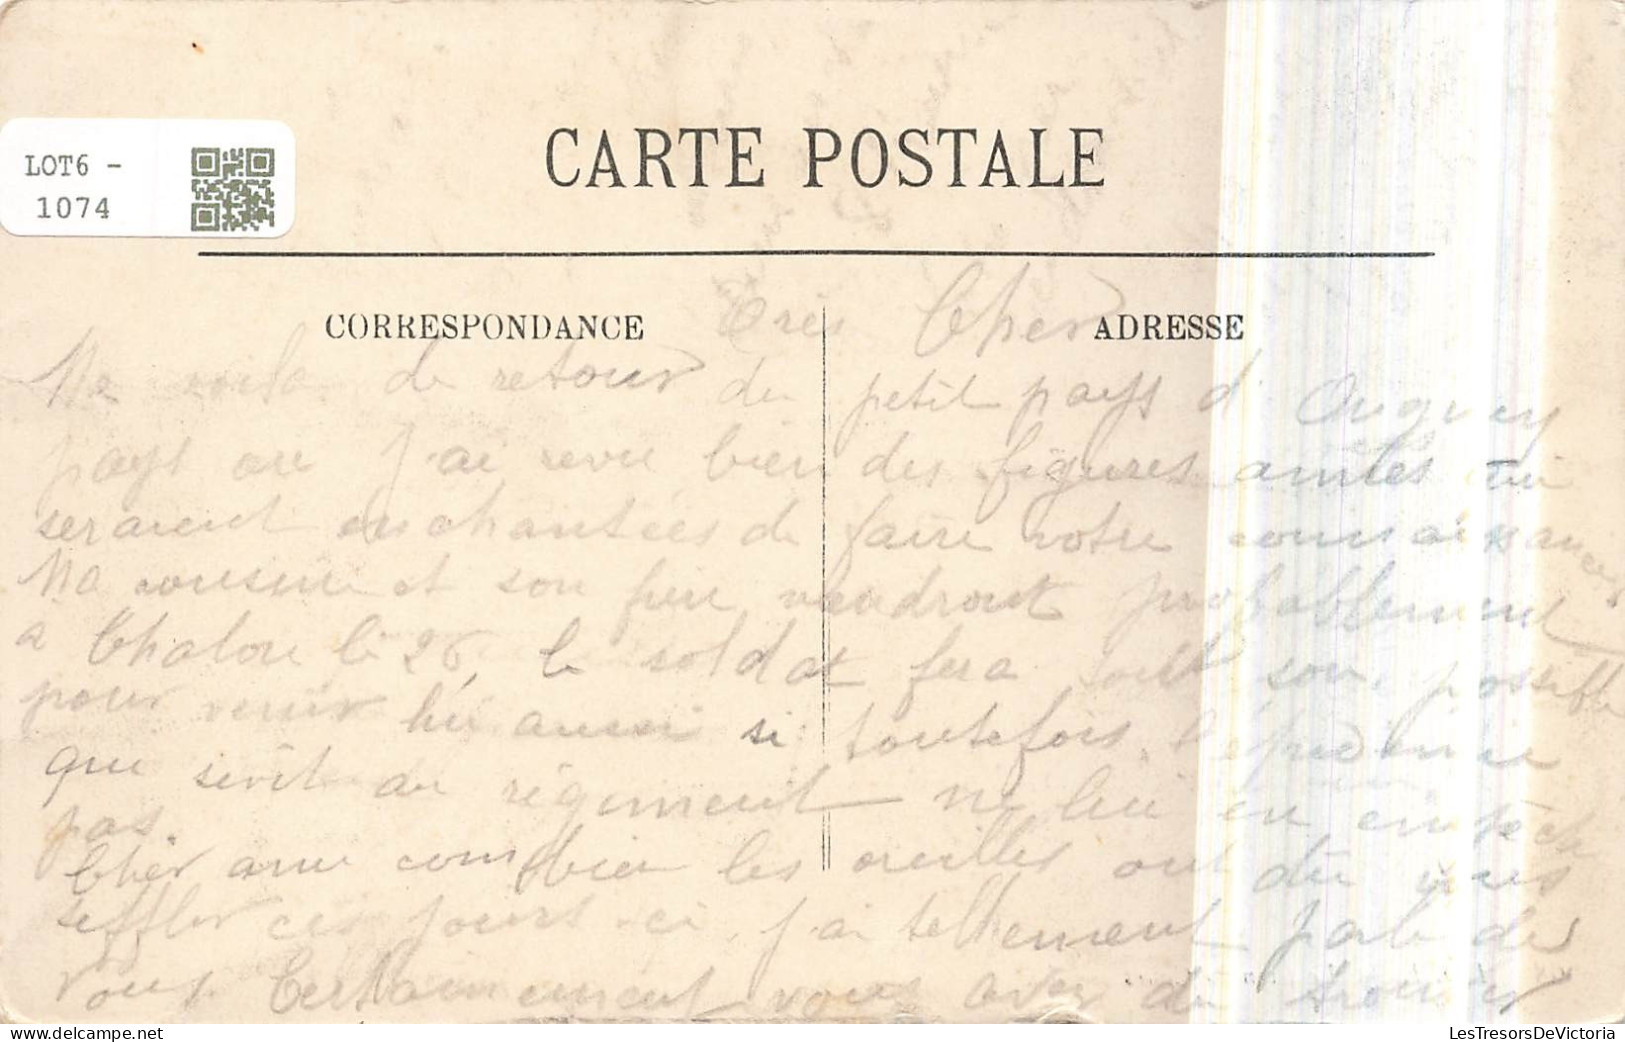 CARTE POSTALE
LOT6 -
1074
CORRESPONDANCE
ADRESSE
Très Cher
Me voila de retour du petit pays d'
pays ou j'ai revu bien des figures amies qui
seraient enchantées de faire votre connaissances
Ma cousine et son père viendront probablement
a Chalon le 26, le soldat fera tout son possible
pour venir lui aussi si toutefois l'epidemie
que sévit au régiment ne lui en empêche
pas.
Cher ami combien les oreilles ont du vous
siffler ces jours-ci, j'ai tellement parlé de
vous. Certainement vous avez du
LesTresorsDeVictoria
www.delcampe.net